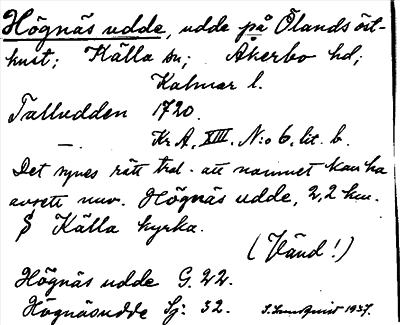 Högnäs udde, udde på Ölands öst-
kust; Källa sn; Åkerbo hd;
Kalmar l.
Talludden 1720.
— Kr.A, XIII. N:o 6, lit. b.
Det synes rätt trol. att namnet kan ha
avsett nuv. Högnäs udde, 2,2 km.
S Källa kyrka.
(Vänd!)
Högnäs udde G. 22.
Högnäsudde Sj: 32. 1937.